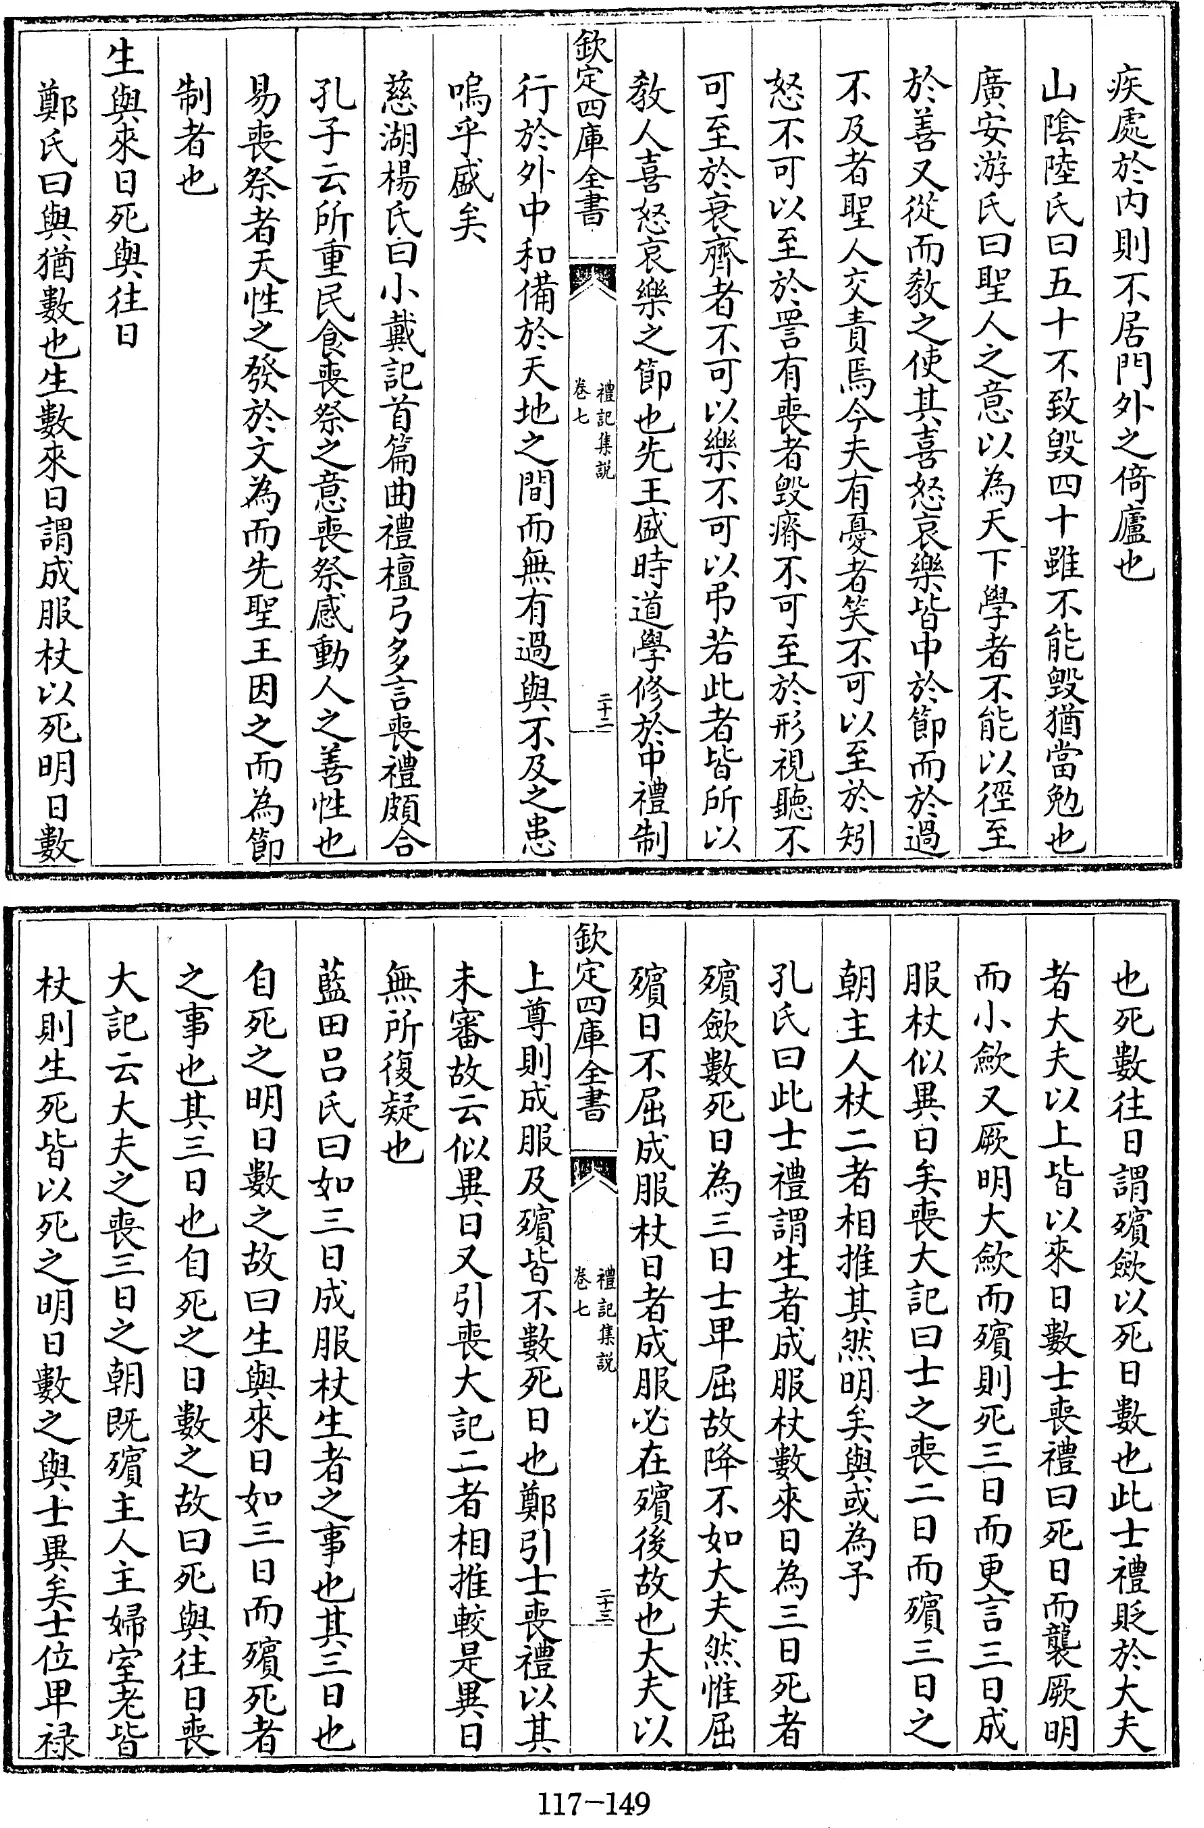 疾處於內則不居門外之倚廬也
山陰陸氏曰五十不致毀四十雖不能毀猶當勉也
廣安游氏曰聖人之意以為天下學者不能以徑至
於善又從而教之使其喜怒哀樂皆中於節而於過
不及者聖人交責焉今夫有憂者笑不可以至於矧
怒不可以至於詈有喪者毀瘠不可至於形視聽不
可至於衰齊者不可以樂不可以弔若此者皆所以
教人喜怒哀樂之節也先王盛時道學修於中禮制
欽定四庫全書
禮記集說
卷七
二十二
行於外中和備於天地之間而無有過與不及之患
嗚乎盛矣
慈湖楊氏曰小戴記首篇曲禮檀弓多言喪禮頗合
孔子云所重民食喪祭之意喪祭感動人之善性也
易喪祭者天性之發於文為而先聖王因之而為節
制者也
生與來日死與往日
鄭氏曰與猶數也生數來日謂成服杖以死明日數
也死數往日謂殯斂以死日數也此士禮貶於大夫
者大夫以上皆以來日數士喪禮曰死日而襲厥明
而小斂又厥明大斂而殯則死三日而更言三日成
服杖似異日矣喪大記曰士之喪二日而殯三日之
朝主人杖二者相推其然明矣與或為予
孔氏曰此士禮謂生者成服杖數來日為三日死者
殯斂數死日為三日士卑屈故降不如大夫然惟屈
殯日不屈成服杖日者成服必在殯後故也大夫以
欽定四庫全書
禮記集說
卷七
二十三
上尊則成服及殯皆不數死日也鄭引士喪禮以其
未審故云似異日又引喪大記二者相推較是異日
無所復疑也
藍田呂氏曰如三日成服杖生者之事也其三日也
自死之明日數之故曰生與來日如三日而殯死者
之事也其三日也自死之日數之故曰死與往日喪
大記云大夫之喪三日之朝既殯主人主婦室老皆
杖則生死皆以死之明日數之與士異矣士位卑祿
117-149